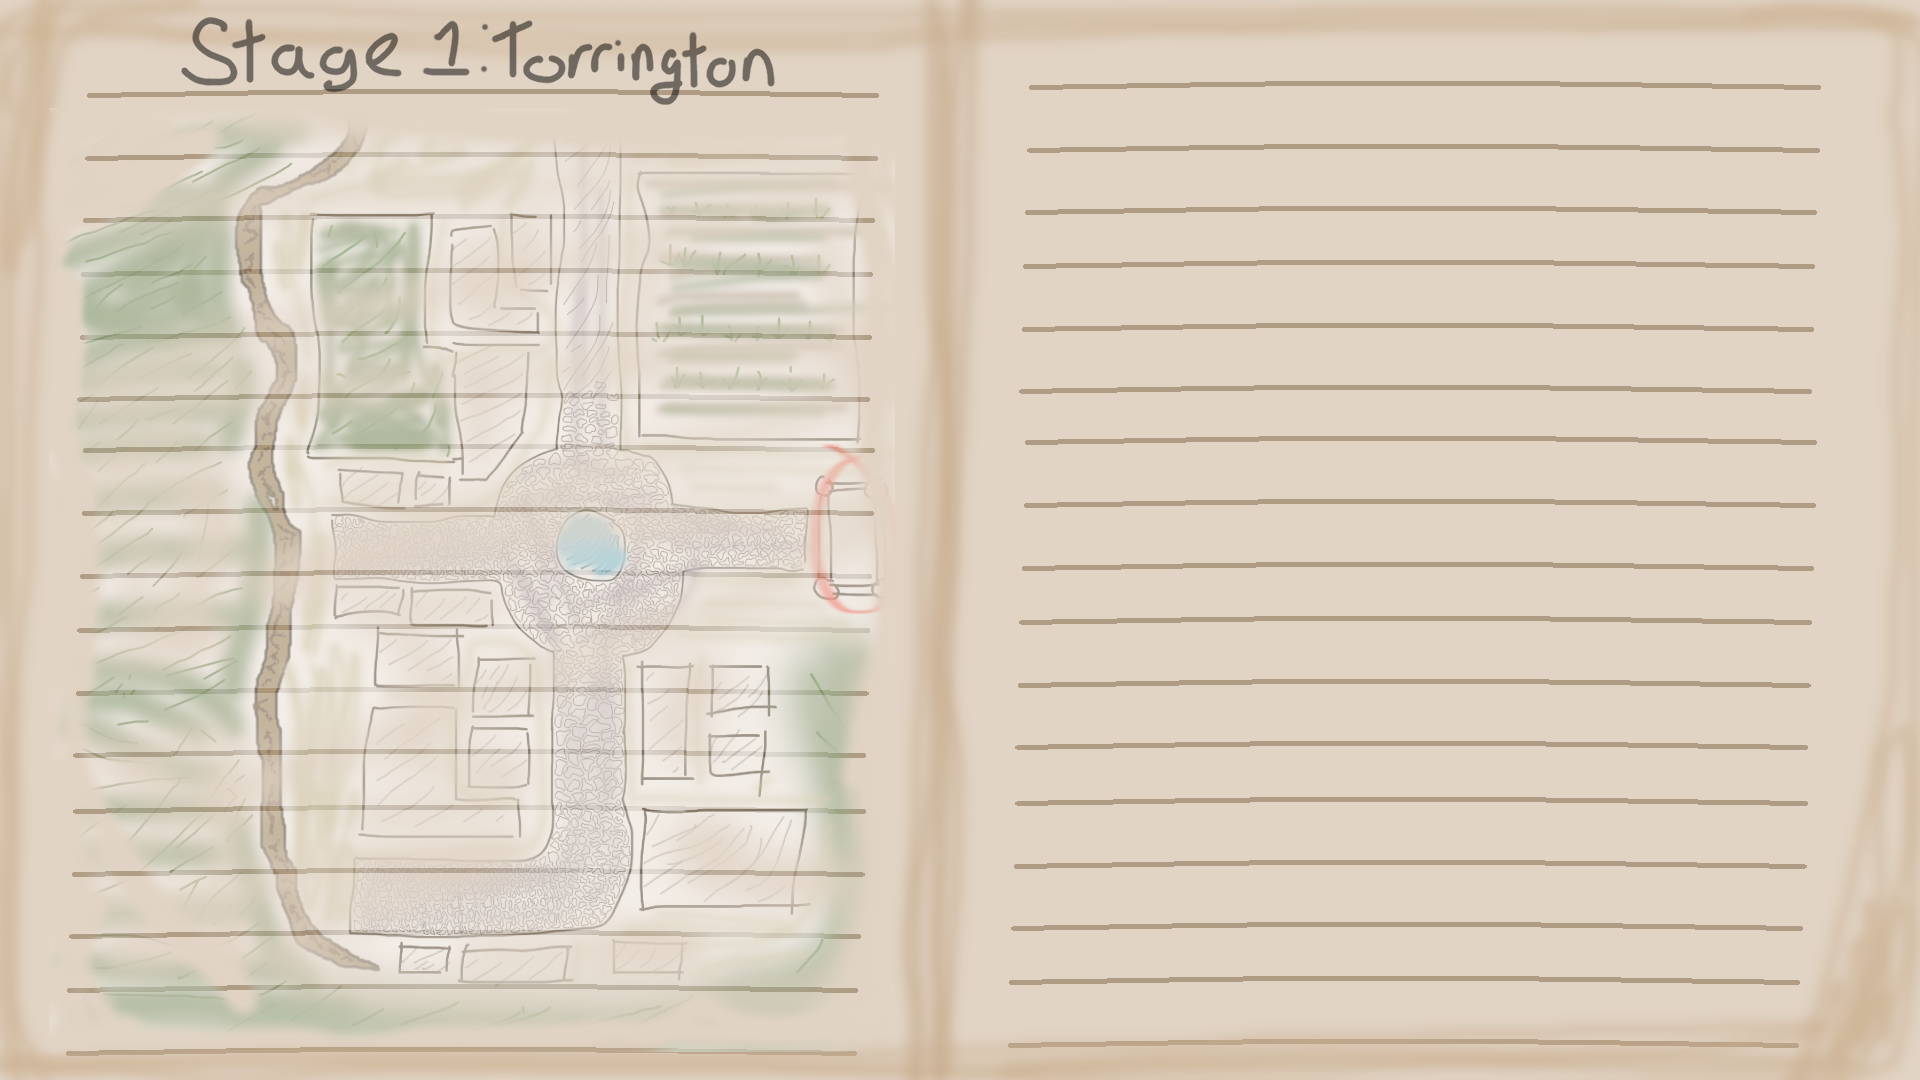 Stage 1: Torrington